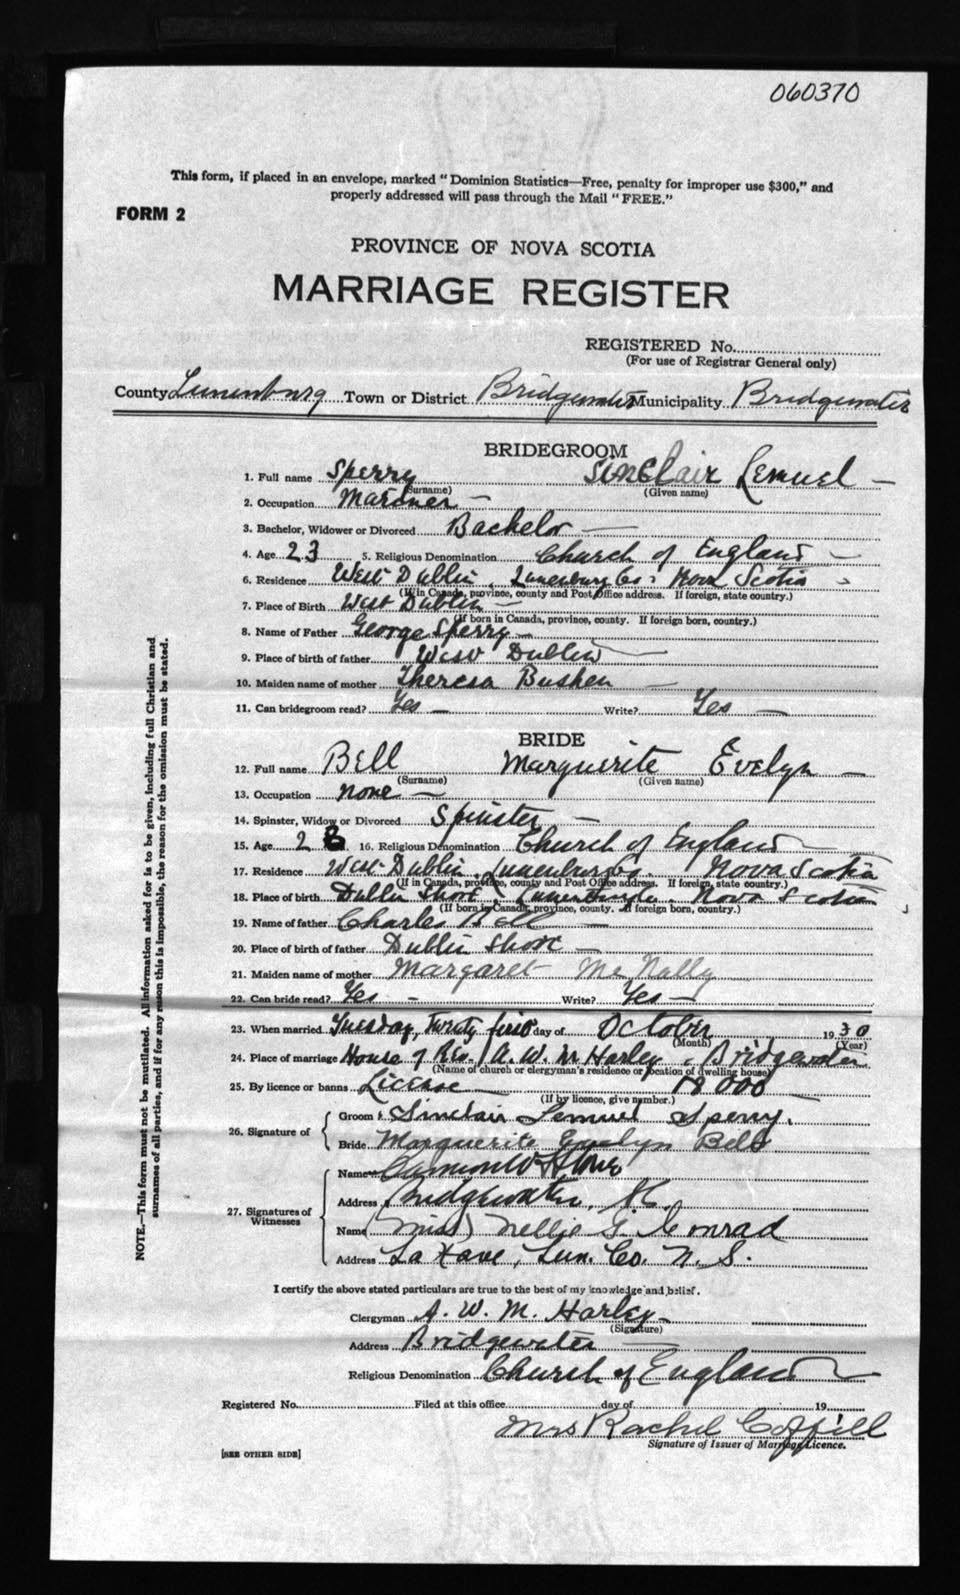 060370
This form, if placed in an envelope, marked "Dominion Statistics—Free, penalty for improper use $300," and
properly addressed will pass through the Mail "FREE."
FORM 2
PROVINCE OF NOVA SCOTIA
MARRIAGE REGISTER
REGISTERED No.
(For use of Registrar General only)
County Lunenburg Town or District Bridgewater Municipality Bridgewater
BRIDEGROOM
1. Full name Sperry Sinclair Lemuel
(Surname) (Given name)
2. Occupation Mariner
3. Bachelor, Widower or Divorced Bachelor
4. Age 23 5. Religious Denomination Church of England
6. Residence West Dublin, Lunenburg Co. Nova Scotia
(If in Canada, province, county and Post Office address. If foreign, state country.)
7. Place of Birth West Dublin
(If born in Canada, province, county. If foreign born, country.)
8. Name of Father George Sperry
9. Place of birth of father West Dublin
10. Maiden name of mother Theresa Bushen
11. Can bridegroom read? Yes Write? Yes
BRIDE
12. Full name Bell Marguerite Evelyn
(Surname) (Given name)
13. Occupation none
14. Spinster, Widow or Divorced Spinster
15. Age 2 16. Religious Denomination Church of England
17. Residence West Dublin, Lunenburg Co. Nova Scotia
(If in Canada, province, county and Post Office address. If foreign, state country.)
18. Place of birth Dublin Shore, Lunenburg Co. Nova Scotia
(If born in Canada, province, county. If foreign born, country.)
19. Name of father Charles Bell
20. Place of birth of father Dublin Shore
21. Maiden name of mother Margaret McNally
22. Can bride read? Yes Write? Yes
23. When married Tuesday, Twenty first day of October 1930
(Month) (Year)
24. Place of marriage House of Rev. A. W. M. Harley, Bridgewater
(Name of church or clergyman's residence or location of dwelling house)
25. By licence or banns License 18000
(If by licence, give number.)
26. Signature of
Groom Sinclair Lemuel Sperry.
Bride Marguerite Evelyn Bell
27. Signatures of Witnesses
Name
Address Bridgewater, N.S.
Name (Miss) Nellie G. Conrad
Address La Have, Lun. Co. N. S.
I certify the above stated particulars are true to the best of my knowledge and belief.
Clergyman A. W. M. Harley
(Signature)
Address Bridgewater
Religious Denomination Church of England
Registered No. Filed at this office day of 19
Mrs Rachel Coffill
Signature of Issuer of Marriage Licence.
[SEE OTHER SIDE]
NOTE.—This form must not be mutilated. All information asked for is to be given, including full Christian and
surnames of all parties, and if for any reason this is impossible, the reason for the omission must be stated.